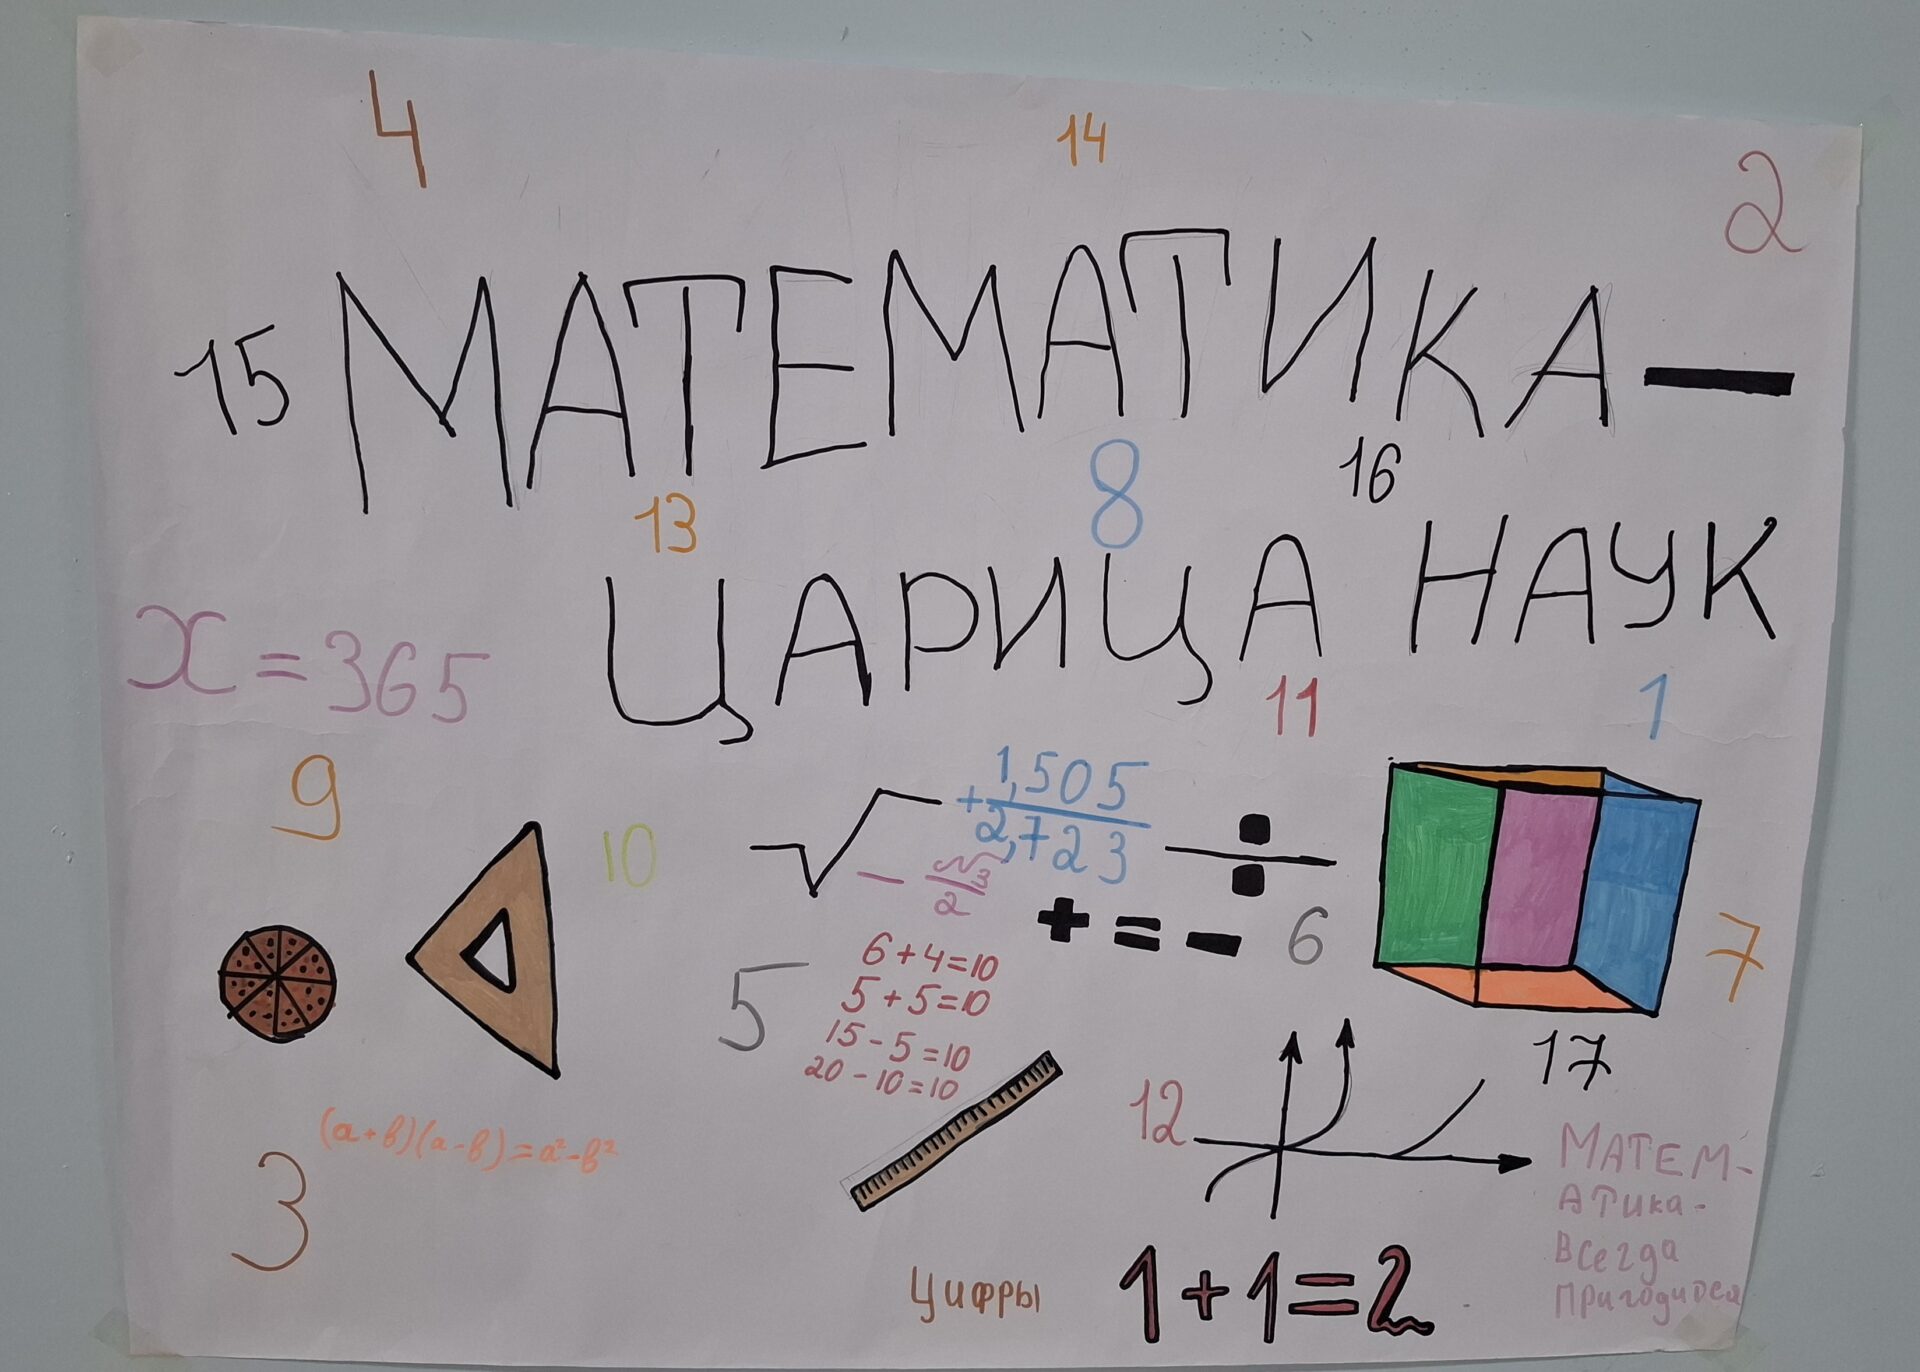 4
14
2
15 МАТЕМАТИКА —
13
8
16
ЦАРИЦА НАУК
x = 365
11
1
9
10
√
1,505
+
2,723
÷
- √3/2
+ = -
6
7
6 + 4 = 10
5 + 5 = 10
15 - 5 = 10
20 - 10 = 10
5
17
12
(a+b)(a-b)=a²-b²
3
МАТЕМ-
АТИка-
Всегда
Пригодится
Цифры
1+1=2